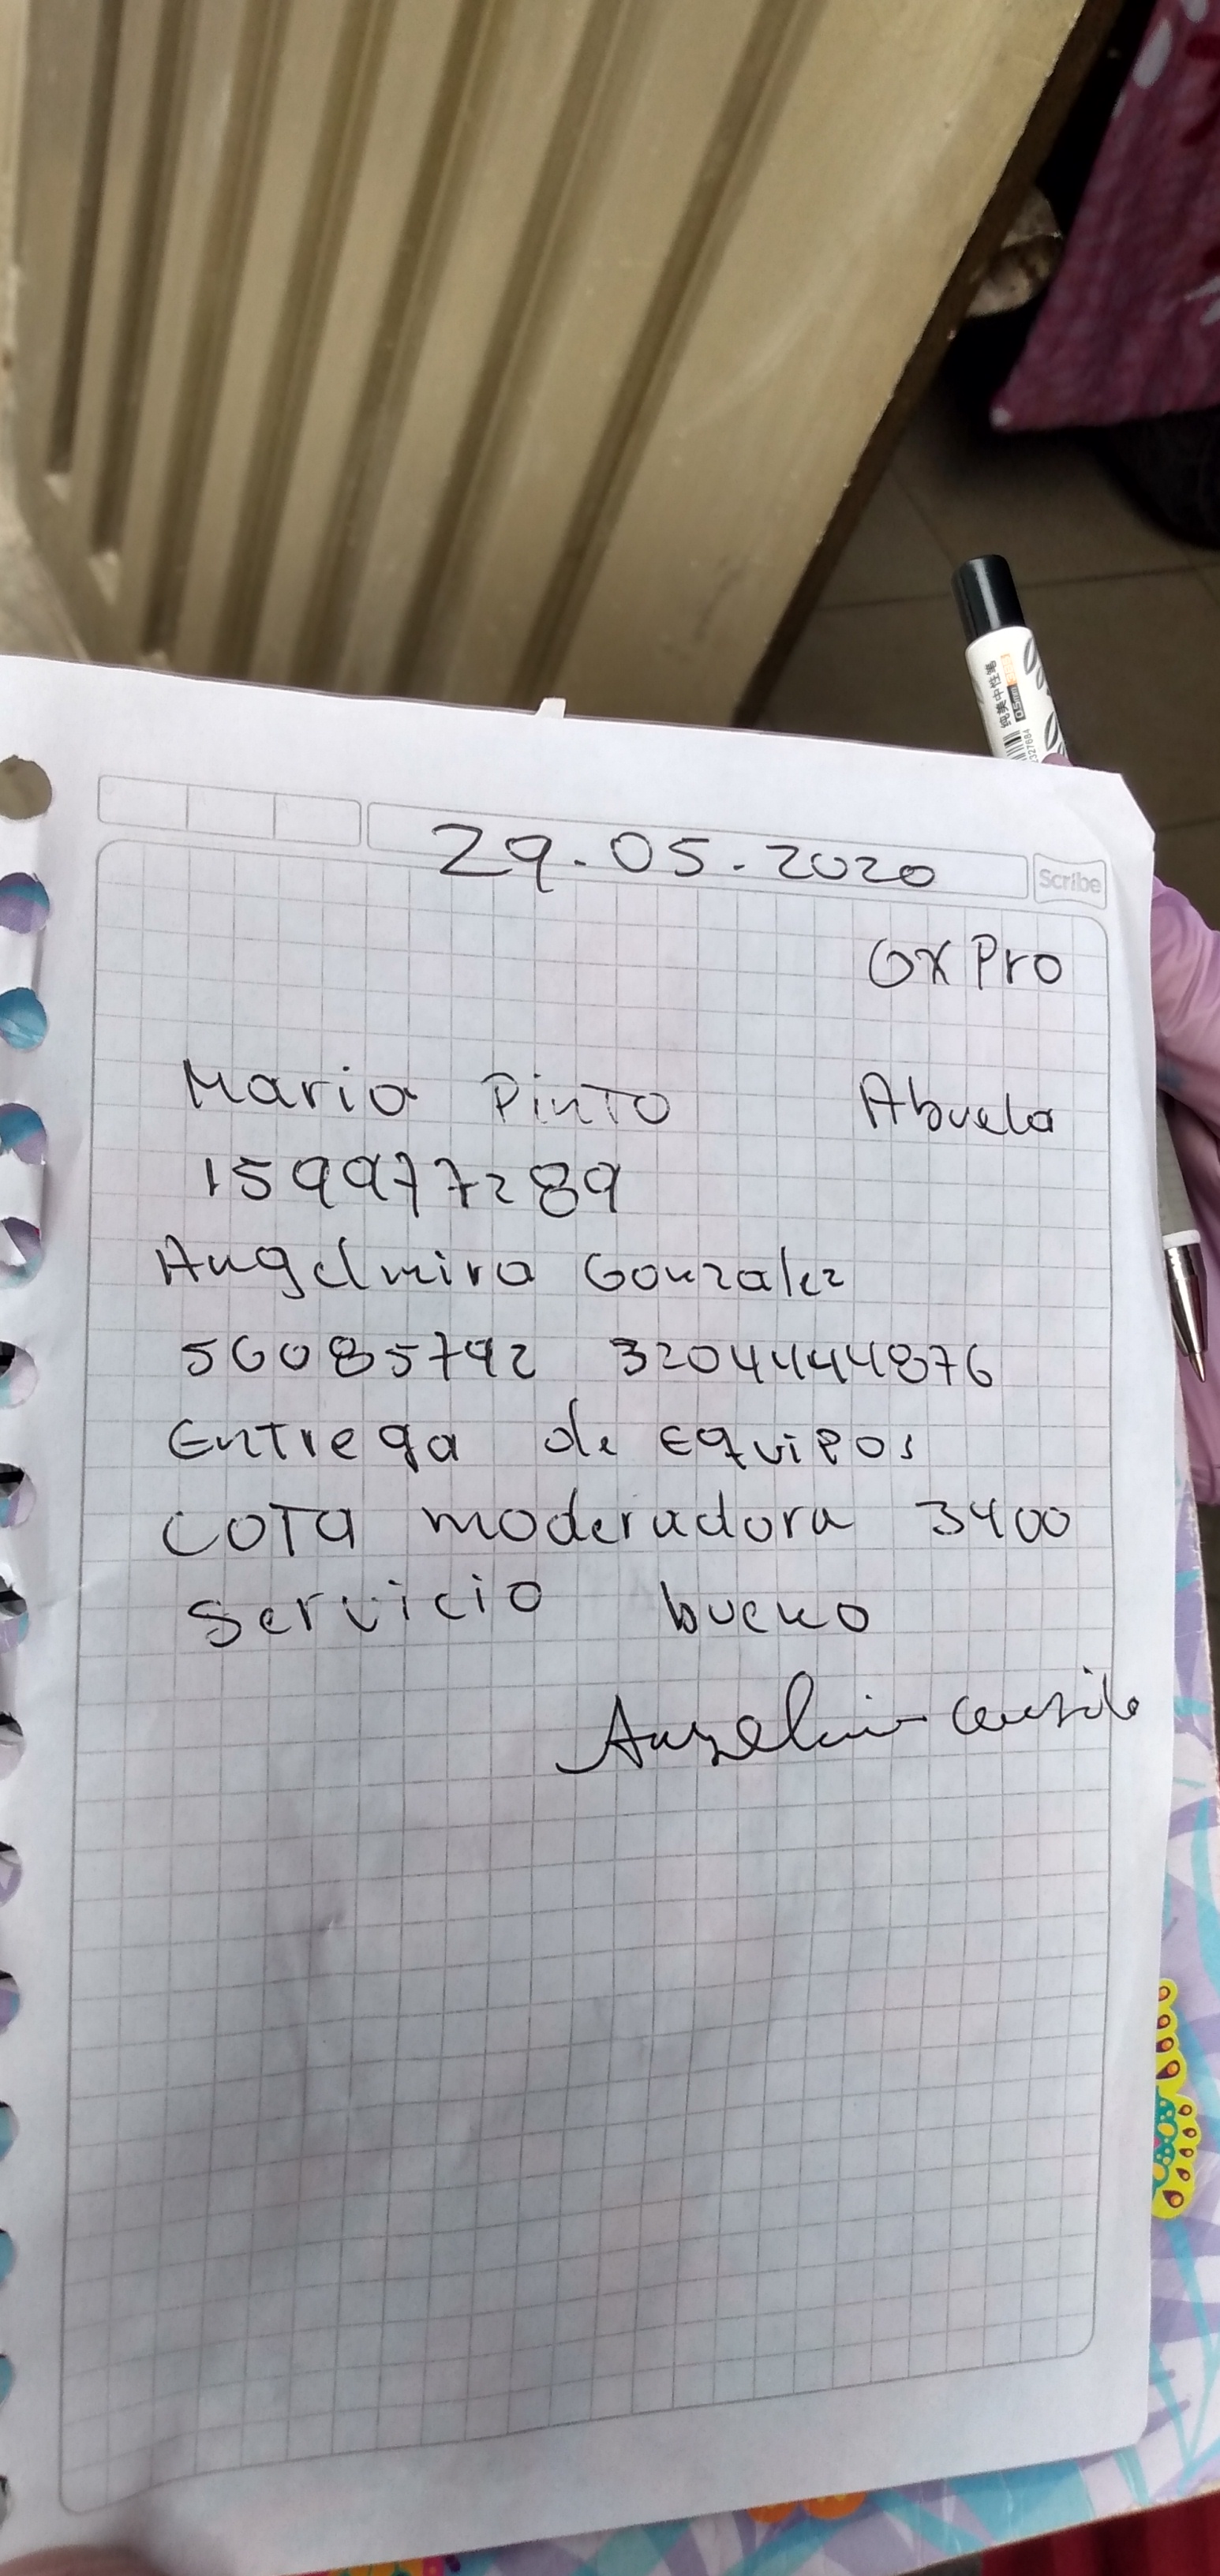 纯美中性笔
0.5mm
29.05.2020
Scribe
OX Pro
Maria Pinto Abuela
159977289
Angelmira Gonzalez
56085792 3204444876
Entrega de Equipos
COTA moderadora 3400
Servicio bueno